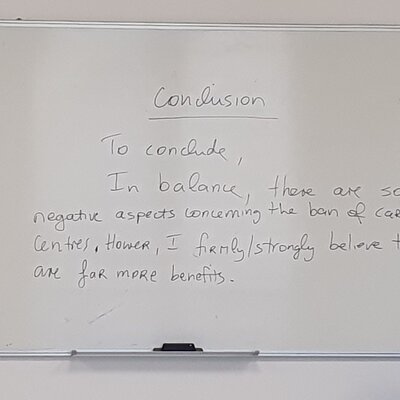 Conclusion
To conclude,
In balance, there are so
negative aspects concerning the ban of car
Centres. Hower, I firmly/strongly believe t
are far more benefits.